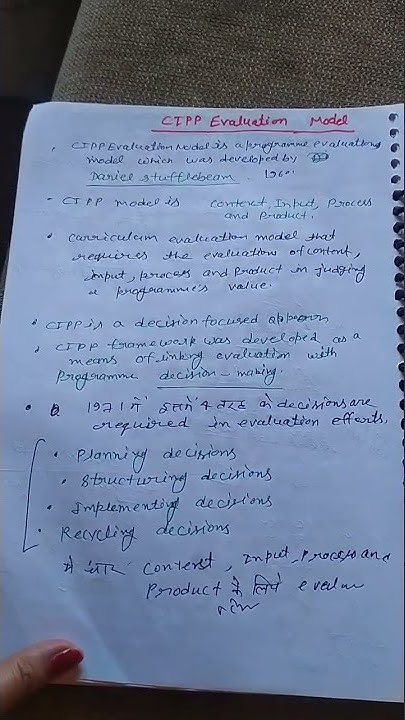 CIPP Evaluation Model
CIPP Evaluation Model is a programme evaluation
model which was developed by
Daniel Stufflebeam. 1960s
- CIPP model is Context, Input, Process
and Product.
• Curriculum evaluation model that
requires the evaluation of context,
input, process and product in judging
a programme's value.
• CIPP is a decision focused
• CIPP framework was developed as a
means of linking evaluation with
Programme decision-making.
• 1971 में इसने 4 तरह के decisions are
required in evaluation efforts.
• Planning decisions
• Structuring decisions
• Implementing decisions
• Recycling decisions
ये चार Context, Input, Process and
Product के लिये